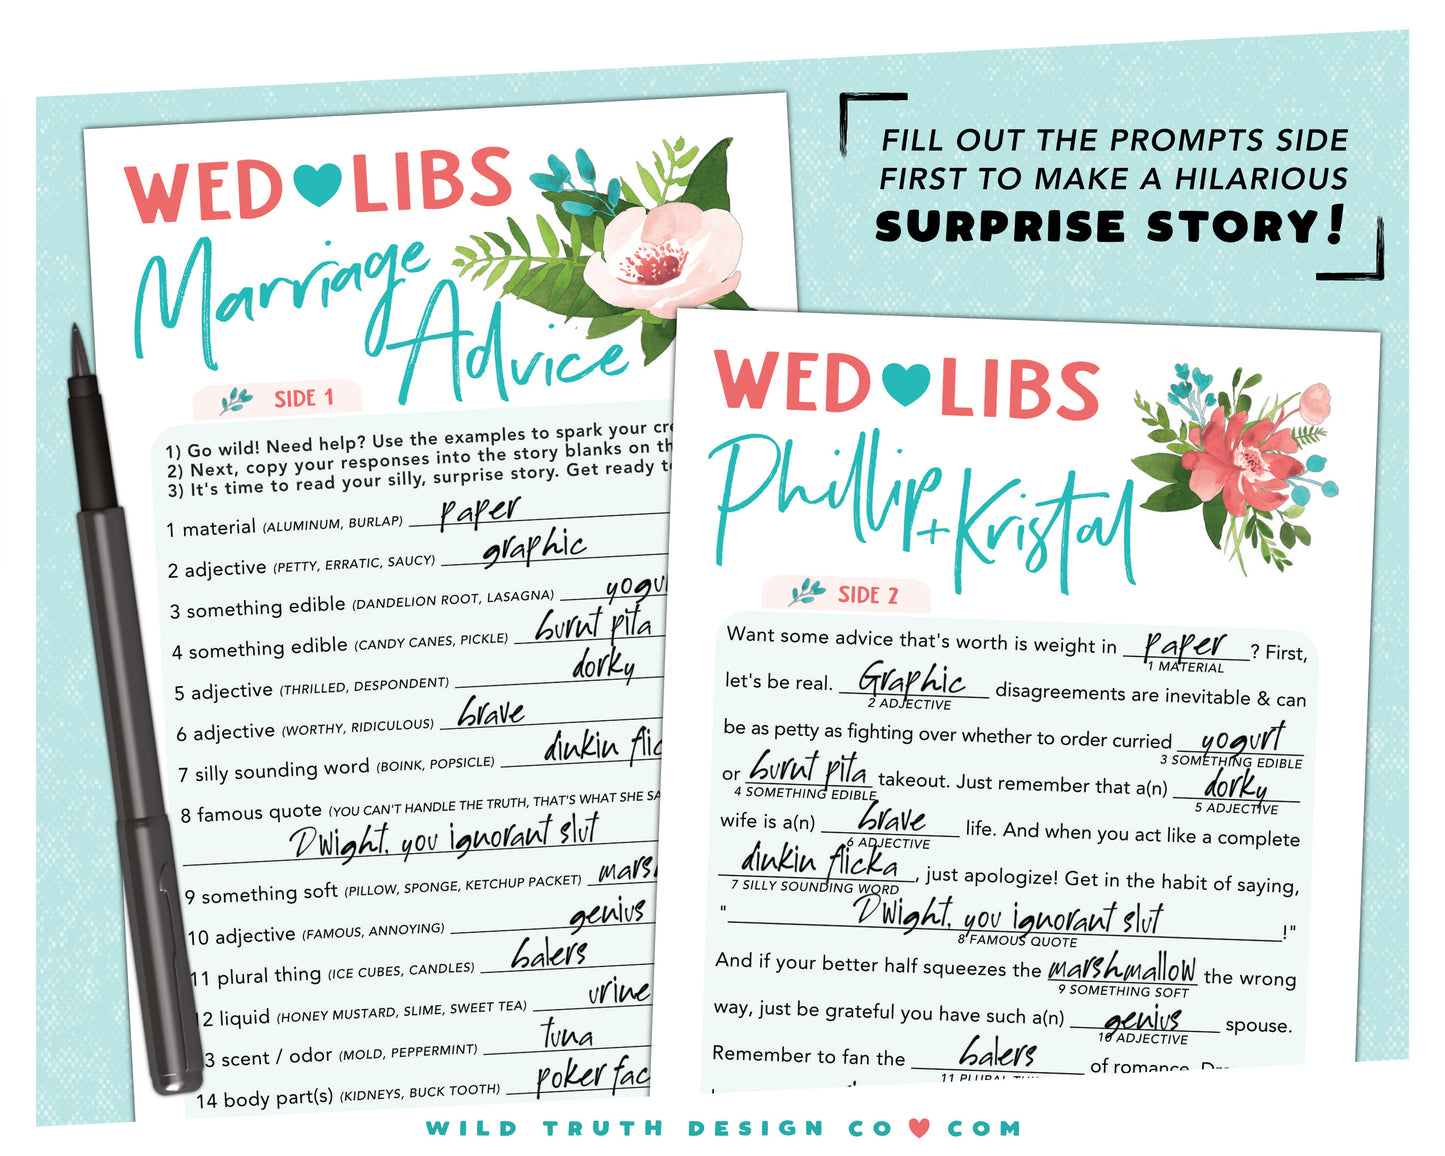 FILL OUT THE PROMPTS SIDE
FIRST TO MAKE A HILARIOUS
SURPRISE STORY!
WED LIBS
Marriage
Advice
SIDE 1
1) Go wild! Need help? Use the examples to spark your
2) Next, copy your responses into the story blanks on
3) It's time to read your silly, surprise story. Get ready
1 material (ALUMINUM, BURLAP) paper
2 adjective (PETTY, ERRATIC, SAUCY) graphic
3 something edible (DANDELION ROOT, LASAGNA) yogu
4 something edible (CANDY CANES, PICKLE) burnt pita
5 adjective (THRILLED, DESPONDENT) dorky
6 adjective (WORTHY, RIDICULOUS) brave
7 silly sounding word (BOINK, POPSICLE) dinkin flic
8 famous quote (YOU CAN'T HANDLE THE TRUTH, THAT'S WHAT SHE SA
Dwight, you ignorant slut
9 something soft (PILLOW, SPONGE, KETCHUP PACKET) marsh
10 adjective (FAMOUS, ANNOYING) genius
11 plural thing (ICE CUBES, CANDLES) balers
2 liquid (HONEY MUSTARD, SLIME, SWEET TEA) urine
3 scent / odor (MOLD, PEPPERMINT) tuna
14 body part(s) (KIDNEYS, BUCK TOOTH) poker fac
WED LIBS
Phillip + Kristal
SIDE 2
Want some advice that's worth is weight in paper? First,
1 MATERIAL
let's be real. Graphic disagreements are inevitable & can
2 ADJECTIVE
be as petty as fighting over whether to order curried yogurt
3 SOMETHING EDIBLE
or burnt pita takeout. Just remember that a(n) dorky
4 SOMETHING EDIBLE 5 ADJECTIVE
wife is a(n) brave life. And when you act like a complete
6 ADJECTIVE
dinkin flicka, just apologize! Get in the habit of saying,
7 SILLY SOUNDING WORD
"Dwight, you ignorant slut!"
8 FAMOUS QUOTE
And if your better half squeezes the marshmallow the wrong
9 SOMETHING SOFT
way, just be grateful you have such a(n) genius spouse.
10 ADJECTIVE
Remember to fan the balers of romance.
11 PLURAL
WILD TRUTH DESIGN CO COM